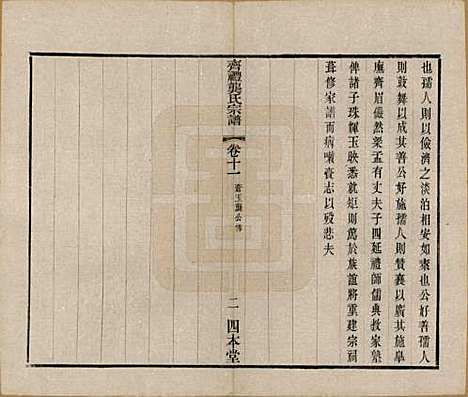 也孺人則以儉濟之淡泊相安如素也公好善孺人
則鼓舞以成其善公好施孺人則贊襄以廣其施皋
廡齊眉儼然梁孟有丈夫子四延禮師儒典教家塾
俾諸子珠輝玉映悉就矩則篤於族誼將重建宗祠
葺修家譜而病嗽賫志以歿悲夫
齊禮龔氏宗譜
卷十一
二
四本堂